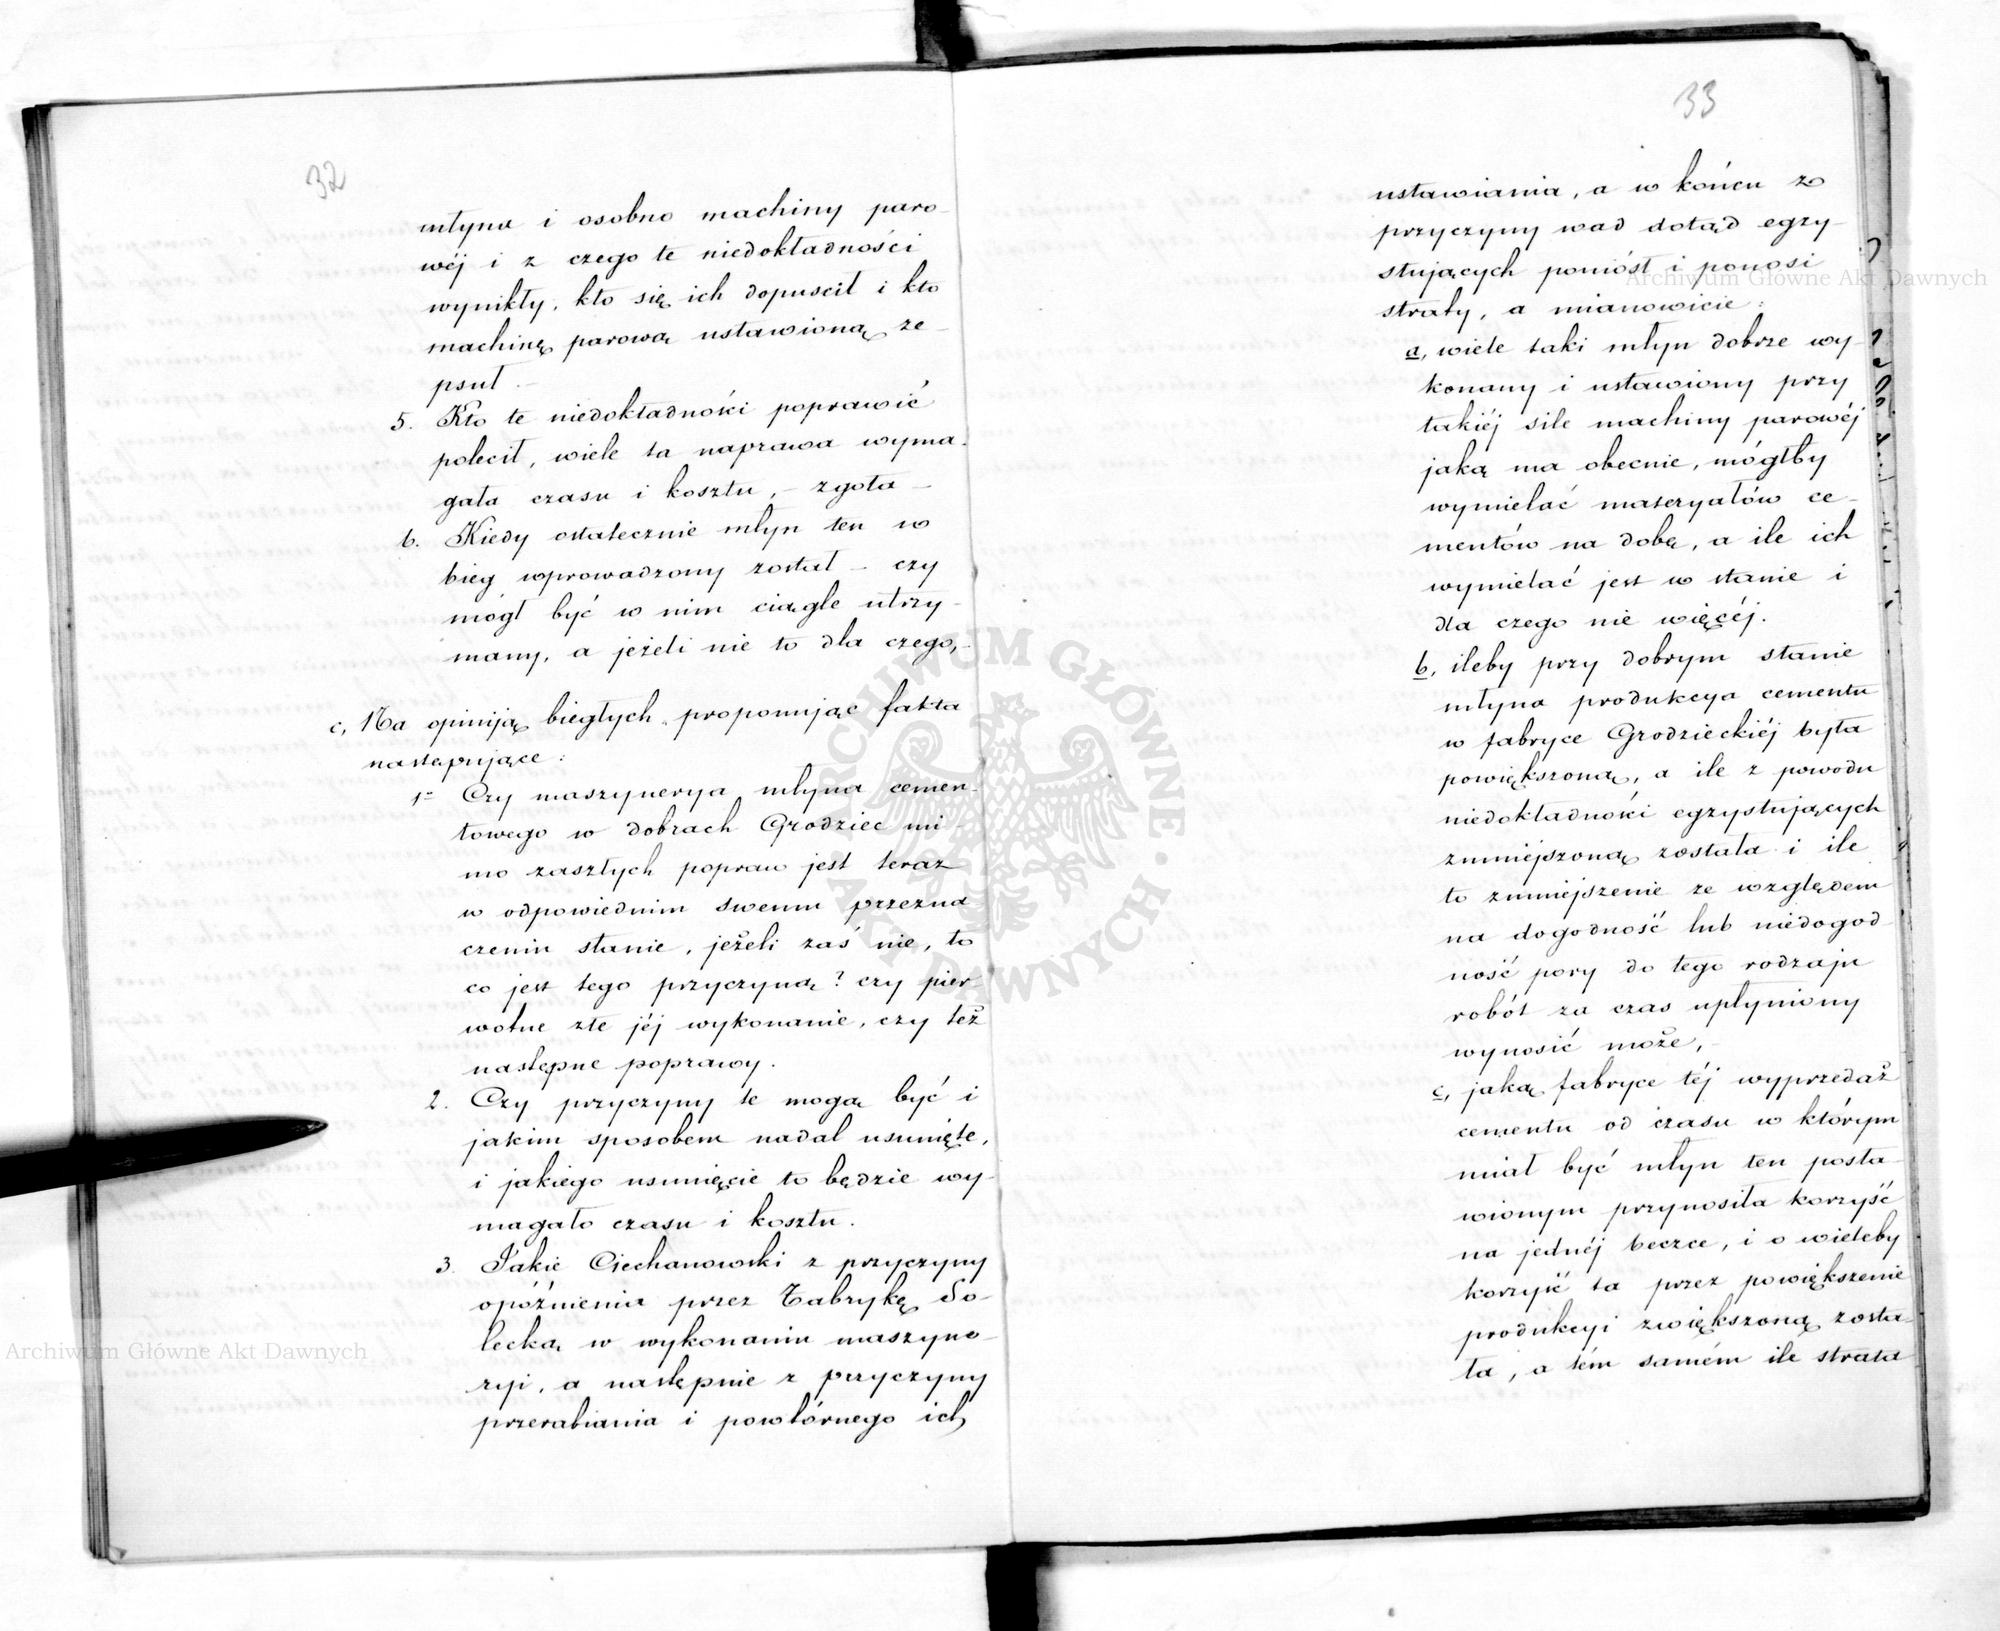 32
młyna i osobno machiny paro-
wéj i z czego te niedokładności
wynikły, kto się ich dopuscił i kto
machinę parową ustawioną ze-
psuł.-
5. Kto te niedokładności poprawić
polecił, wiele ta naprawa wyma-
gała czasu i kosztu, - zgoła -
6. Kiedy ostatecznie młyn ten w
bieg wprowadzony został - czy
mógł być w nim ciągle utrzy-
many, a jeżeli nie to dla czego,-
c, Na opiniję biegłych proponując fakta
następujące:
1= Czy maszynerya młyna cemen-
towego w dobrach Grodziec mi-
mo zaszłych popraw jest teraz
w odpowiednim swemu przezna
czeniu stanie, jeżeli zaś nie, to
co jest tego przyczyną? czy pier
wotne złe jéj wykonanie, czy też
następne poprawy.
2. Czy przyczyny te mogą być i
jakim sposobem nadal usunięte,
i jakiego usunięcie to będzie wy-
magało czasu i kosztu.
3. Jakie Ciechanowski z przyczyny
opóźnienia przez Fabrykę So-
lecką w wykonaniu maszyne-
ryi, a następnie z przyczyny
przerabiania i powtórnego ich
33
ustawiania, a w końcu z
przyczyny wad dotąd egzy-
stujących poniósł i ponosi
straty, a mianowicie:
a, wiele taki młyn dobrze wy-
konany i ustawiony przy
takiéj sile machiny parowéj
jaką ma obecnie, mógłby
wymielać materyałów ce-
mentów na dobę, a ile ich
wymielać jest w stanie i
dla czego nie więcéj.
b, ileby przy dobrym stanie
młyna produkcya cementu
w fabryce Grodzieckiéj była
powiększoną, a ile z powodu
niedokładności egzystujących
zmniejszoną została i ile
to zmniejszenie ze względem
na dogodność lub niedogod-
ność pory do tego rodzaju
robót za czas upłyniony
wynosić może,-
c, jaką fabryce téj wyprzedaż
cementu od czasu w którym
miał być młyn ten posta-
wionym przynosiła korzyść
na jednéj beczce, i o wieleby
korzyść ta przez powiększenie
produkcyi zwiększoną zosta-
ła, a tém samém ile strata
Archiwum Główne Akt Dawnych
Archiwum Główne Akt Dawnych
ARCHIWUM GŁÓWNE
AKT DAWNYCH